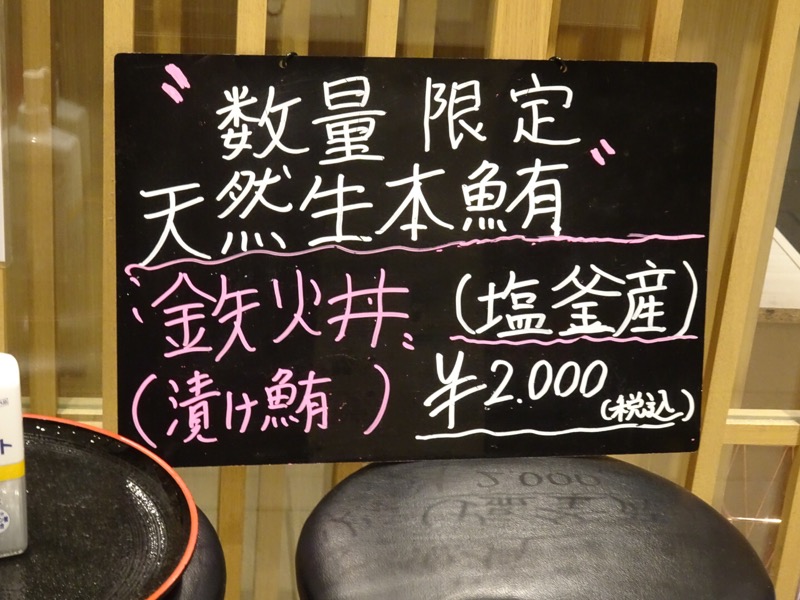 〝数量限定〟
天然生本鮪
鉄火丼 (塩釜産)
(漬け鮪) ¥2.000(税込)
ト